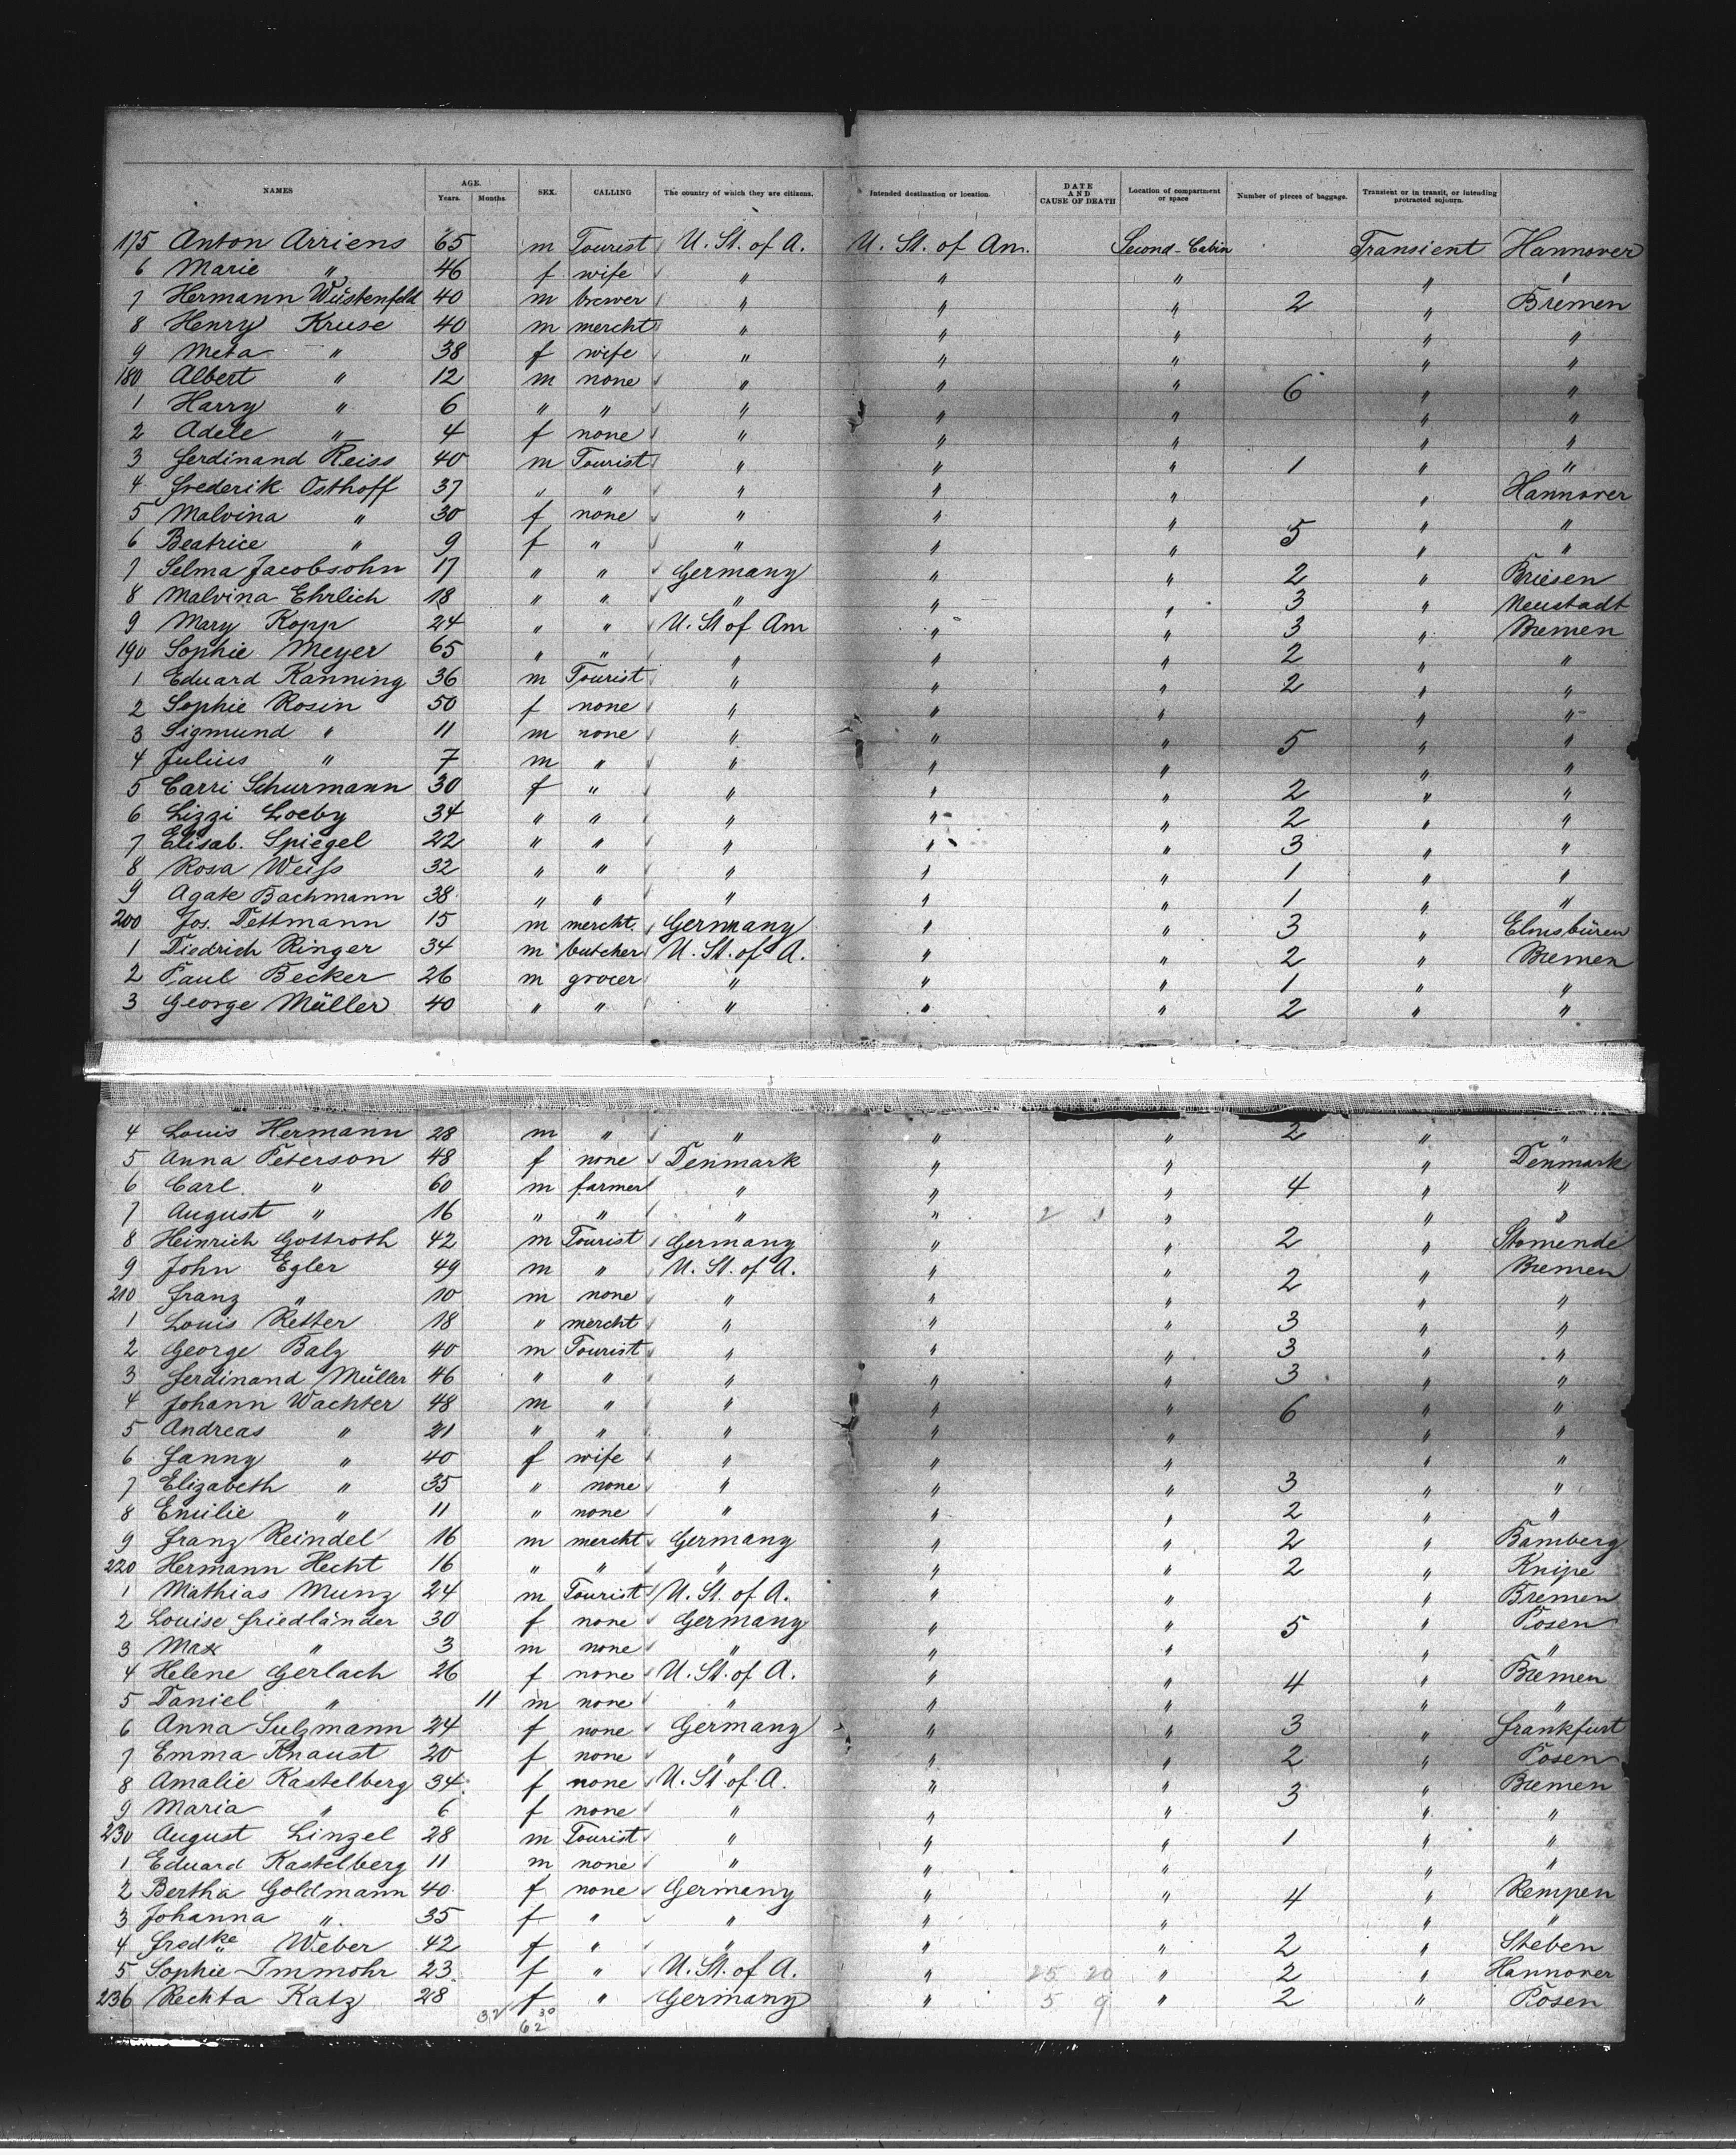 NAMES AGE. Years. Months. SEX. CALLING The country of which they are citizens. Intended destination or location. DATE AND CAUSE OF DEATH Location of compartment or space Number of pieces of baggage. Transient or in transit, or intending protracted sojourn.
175 Anton Arriens 65 m Tourist U. St. of A. U. St. of Am. Second-Cabin Transient Hannover
6 Marie " 46 f wife " " " " "
7 Hermann Wüstenfeld 40 m brewer " " " 2 " Bremen
8 Henry Kruse 40 m mercht " " " " "
9 Meta " 38 f wife " " " " "
180 Albert " 12 m none " " " 6 " "
1 Harry " 6 " " " " " " "
2 Adele " 4 f none " " " " "
3 Ferdinand Reiss 40 m Tourist " " " 1 " "
4 Frederik Osthoff 37 " " " " " " Hannover
5 Malvina " 30 f none " " " 5 " "
6 Beatrice " 9 f " " " " " "
7 Selma Jacobsohn 17 " " Germany " " 2 " Briesen
8 Malvina Ehrlich 18 " " " " " 3 " Neustadt
9 Mary Kopp 24 " " U. St of Am " " 3 " Bremen
190 Sophie Meyer 65 " " " " " 2 " "
1 Eduard Kanning 36 m Tourist " " " 2 " "
2 Sophie Rosin 50 f none " " " " "
3 Sigmund " 11 m none " " " 5 " "
4 Julius " 7 m " " " " " "
5 Carri Schurmann 30 f " " " " 2 " "
6 Lizzi Loeby 34 " " " " " 2 " "
7 Elisab. Spiegel 22 " " " " " 3 " "
8 Rosa Weiss 32 " " " " " 1 " "
9 Agate Bachmann 38 " " " " " 1 " "
200 Jos. Dettmann 15 m mercht. Germany " " 3 " Elmsbüren
1 Diedrich Ringer 34 m butcher U. St. of A. " " 2 " Bremen
2 Paul Becker 26 m grocer " " " 1 " "
3 George Müller 40 " " " " " 2 " "
4 Louis Hermann 28 m " " " " 2 " "
5 Anna Peterson 48 f none Denmark " " " Denmark
6 Carl " 60 m farmer " " " 4 " "
7 August " 16 " " " " " " "
8 Heinrich Gottroth 42 m Tourist Germany " " 2 " Stemende
9 John Egler 49 m " U. St. of A. " " 2 " Bremen
210 Franz " 10 m none " " " " "
1 Louis Retter 18 " mercht " " " 3 " "
2 George Balz 40 m Tourist " " " 3 " "
3 Ferdinand Müller 46 " " " " " 3 " "
4 Johann Wachter 48 m " " " " 6 " "
5 Andreas " 21 " " " " " " "
6 Fanny " 40 f wife " " " " "
7 Elizabeth " 35 " none " " " 3 " "
8 Emilie " 11 " none " " " 2 " "
9 Franz Reindel 16 m mercht Germany " " 2 " Bamberg
220 Hermann Hecht 16 " " " " " 2 " Knipe
1 Mathias Munz 24 m Tourist U. St. of A. " " " Bremen
2 Louise Friedländer 30 f none Germany " " 5 " Posen
3 Max " 3 m none " " " " "
4 Helene Gerlach 26 f none U. St. of A. " " 4 " Bremen
5 Daniel " 11 m none " " " " "
6 Anna Sulzmann 24 f none Germany " " 3 " Frankfurt
7 Emma Knaust 20 f none " " " 2 " Posen
8 Amalie Kastelberg 34 f none U. St. of A. " " 3 " Bremen
9 Maria " 6 f none " " " " "
230 August Linzel 28 m Tourist " " " 1 " "
1 Eduard Kastelberg 11 m none " " " " "
2 Bertha Goldmann 40 f none Germany " " 4 " Kempen
3 Johanna " 35 f " " " " " "
4 Fredke Weber 42 f " " " " 2 " Steben
5 Sophie Immohr 23 f " U. St. of A. " 25 20 " 2 " Hannover
236 Rechta Katz 28 f " Germany " 5 9 " 2 " Posen
32 30
62